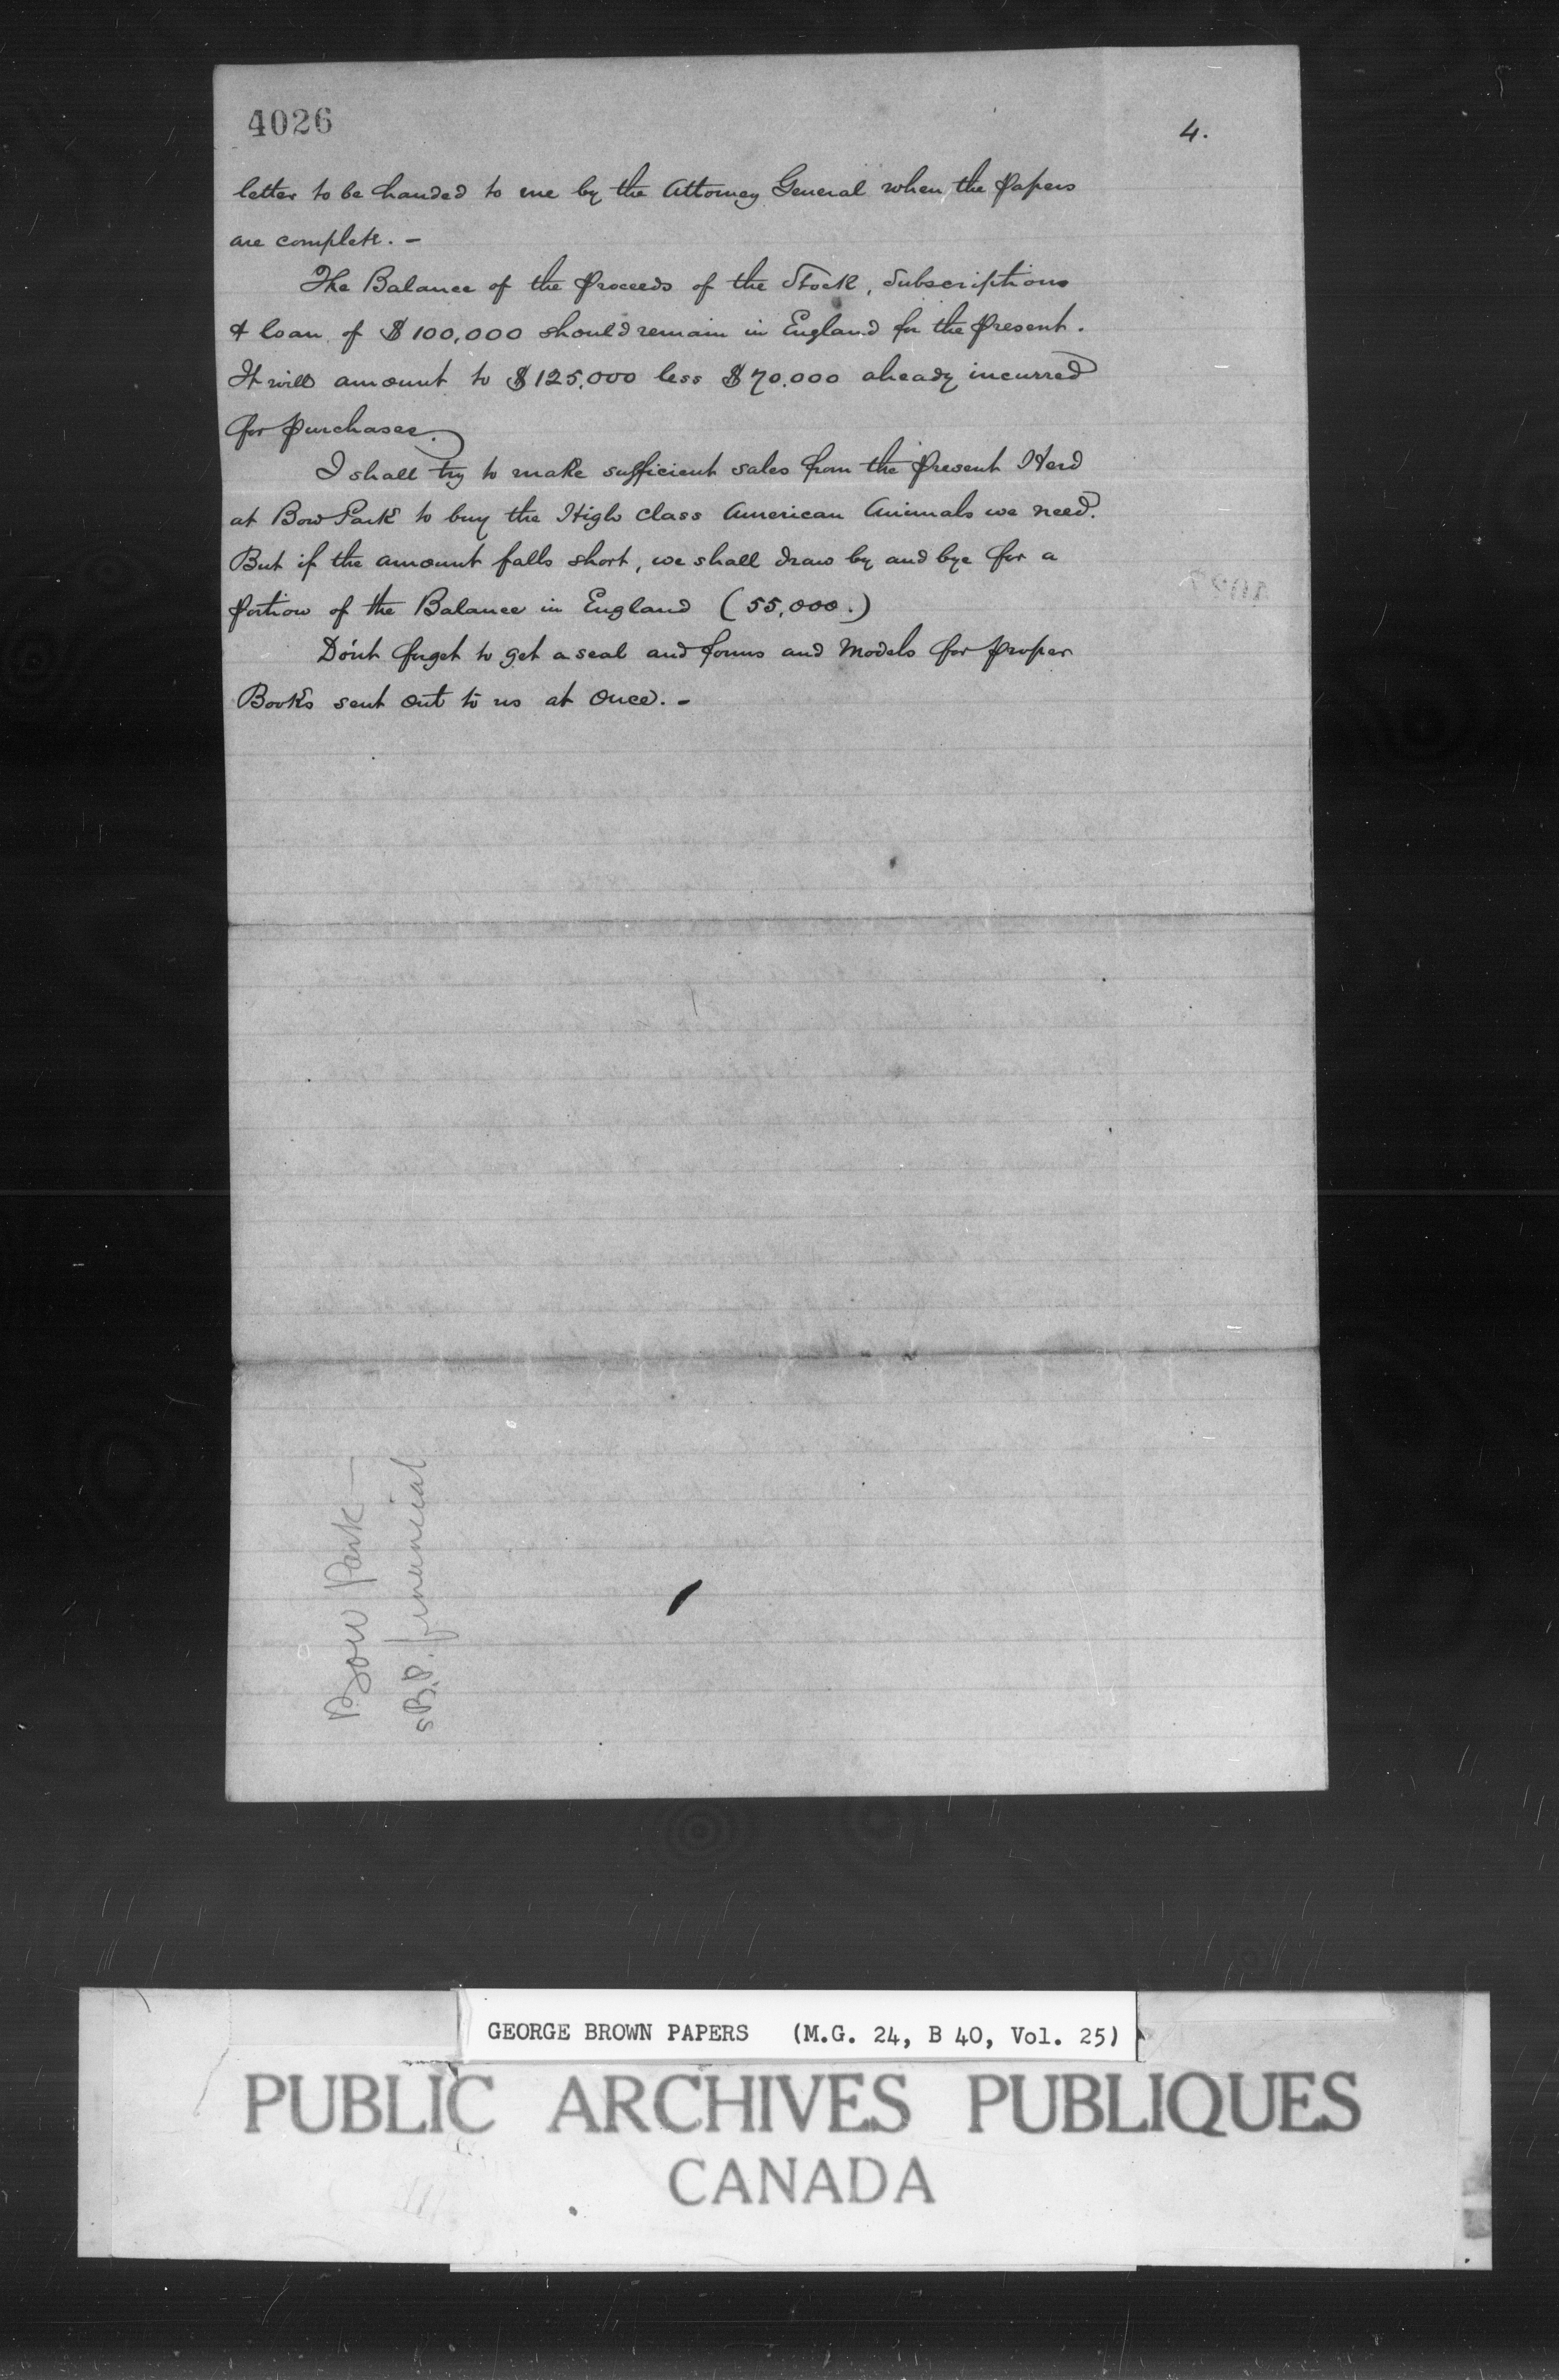 4026
4.
letter to be handed to me by the Attorney General when the Papers
are complete. -
The Balance of the Proceeds of the Stock, Subscriptions
& loan of $100,000 should remain in England for the Present.
It will amount to $125,000 less $70,000 already incurred
for purchases.
I shall try to make sufficient sales from the Present Herd
at Bow Park to buy the High Class American Animals we need.
But if the amount falls short, we shall draw by and bye for a
Portion of the Balance in England (55,000.)
Don't forget to get a seal and forms and Models for proper
Books sent out to us at Once. -
Bow Park —
B.P. financial
GEORGE BROWN PAPERS (M.G. 24, B 40, Vol. 25)
PUBLIC ARCHIVES PUBLIQUES
CANADA